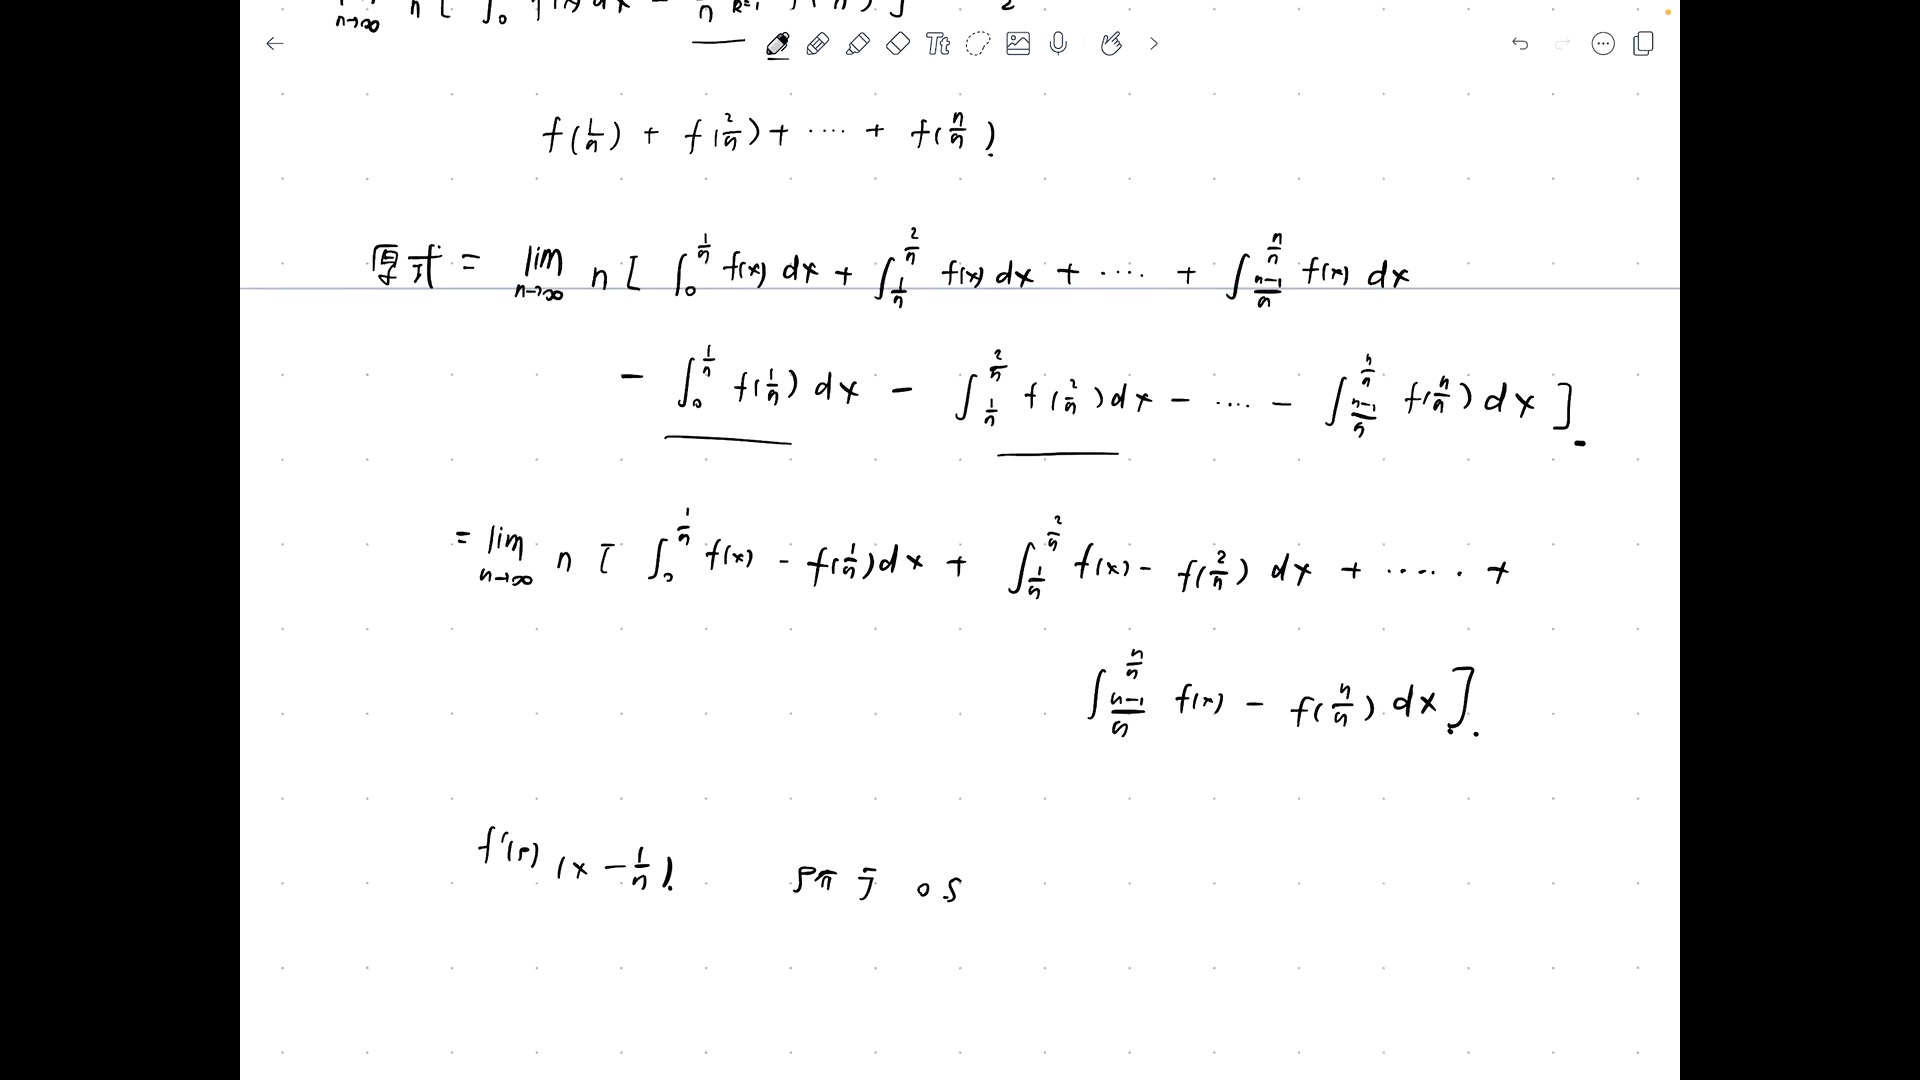 lim n→∞ n [ ∫₀ f(x) dx - 1/n k=1 f( n ) ] 2
Tt
f(1/n) + f(2/n) + ···· + f(n/n)
原式 = lim n→∞ n [ ∫_0^{1/n} f(x) dx + ∫_{1/n}^{2/n} f(x) dx + ···· + ∫_{(n-1)/n}^{n/n} f(x) dx
- ∫_0^{1/n} f(1/n) dx - ∫_{1/n}^{2/n} f(2/n) dx - ···· - ∫_{(n-1)/n}^{n/n} f(n/n) dx ]
= lim n→∞ n [ ∫_0^{1/n} f(x) - f(1/n) dx + ∫_{1/n}^{2/n} f(x) - f(2/n) dx + ····· +
∫_{(n-1)/n}^{n/n} f(x) - f(n/n) dx ].
(x - 1/n).